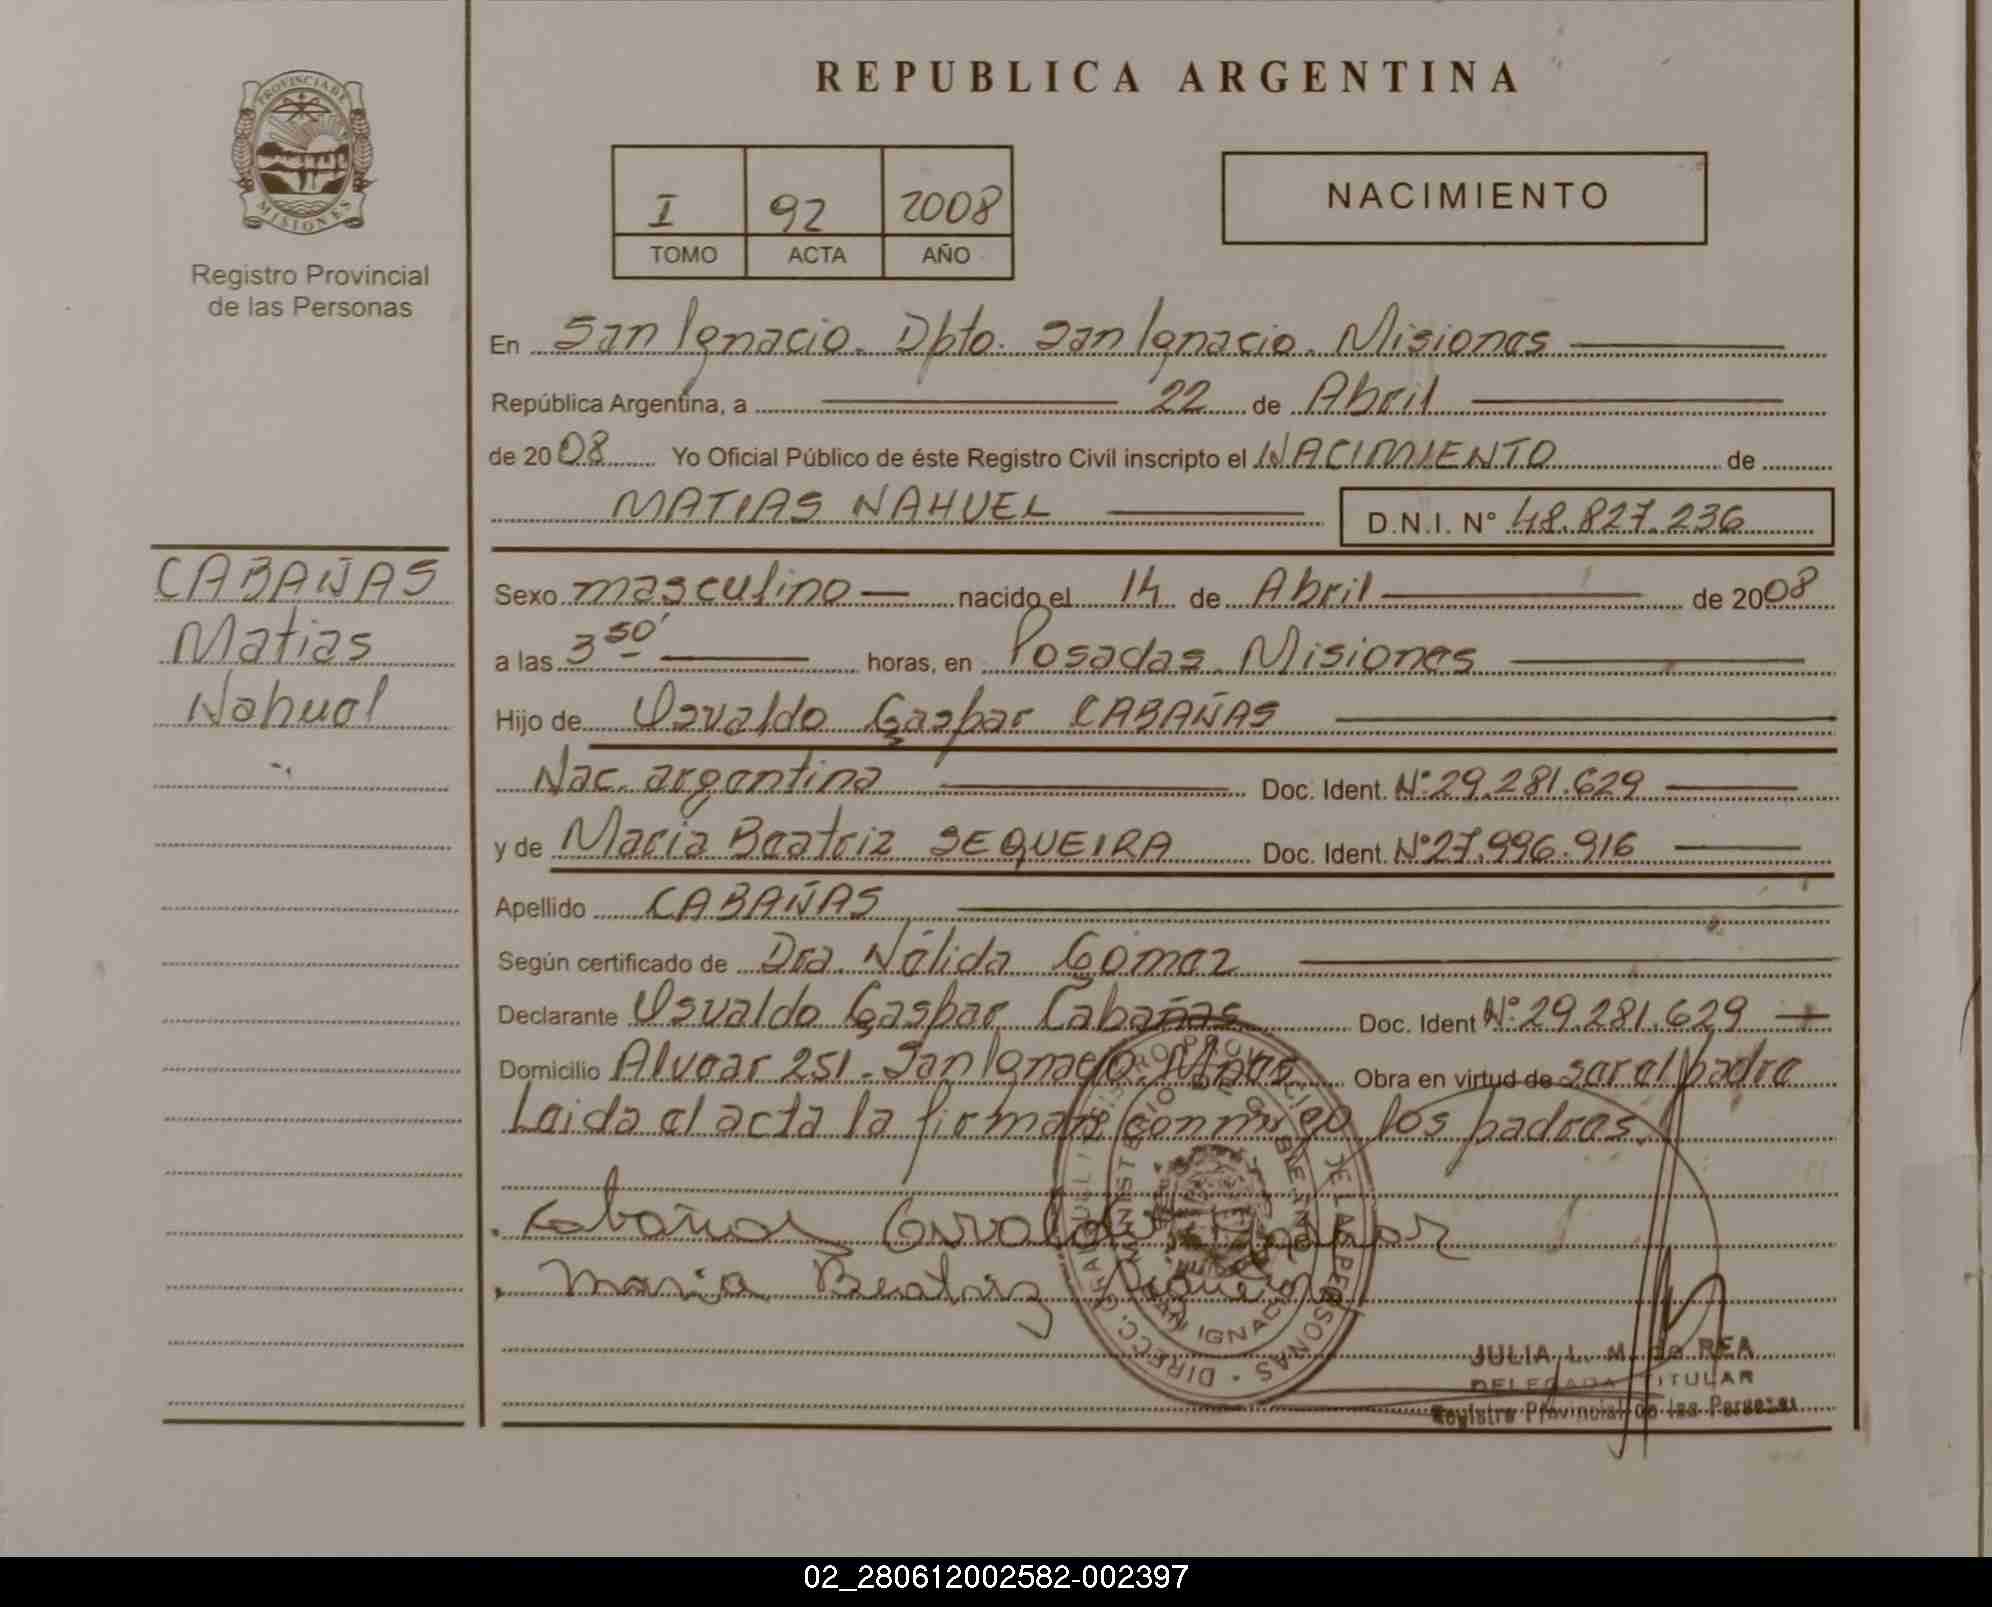 REPUBLICA ARGENTINA
PROVINCIA DE
MISIONES
Registro Provincial
de las Personas
I 92 2008
TOMO ACTA AÑO
NACIMIENTO
En San Ignacio. Dpto. San Ignacio. Misiones
República Argentina, a 22 de Abril
de 2008 Yo Oficial Público de éste Registro Civil inscripto el NACIMIENTO de
MATIAS NAHUEL D.N.I. N° 48.827.236
CABAÑAS
Matias
Nahuel
Sexo masculino nacido el 14 de Abril de 2008
a las 3 50' horas, en Posadas. Misiones
Hijo de Osvaldo Gaspar CABAÑAS
Nac. argentina Doc. Ident. N° 29.281.629
y de Maria Beatriz SEQUEIRA Doc. Ident. N° 27.996.916
Apellido CABAÑAS
Según certificado de Dra Nélida Gómez
Declarante Osvaldo Gaspar Cabañas Doc. Ident N° 29.281.629
Domicilio Alvear 251. San Ignacio. Mnes Obra en virtud de ser el padre
Leida el acta la firman conmigo los padres.
Cabañas Osvaldo Gaspar
Maria Beatriz Sequeira
JULIA L. M. de REA
DELEGADA TITULAR
Registro Provincial de las Personas
02_280612002582-002397